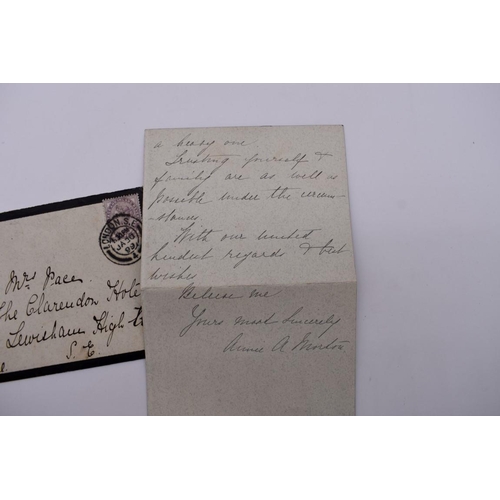 a
Trusting yourself &
family are as well as
possible under the circum-
-stances.
With our united
kindest regards & best
wishes
Believe me
Yours most sincerely
Annie A Morton
LONDON. S.E.
JA
99
Mrs Pace
The Clarendon Hote
Lewisham High
S. E.